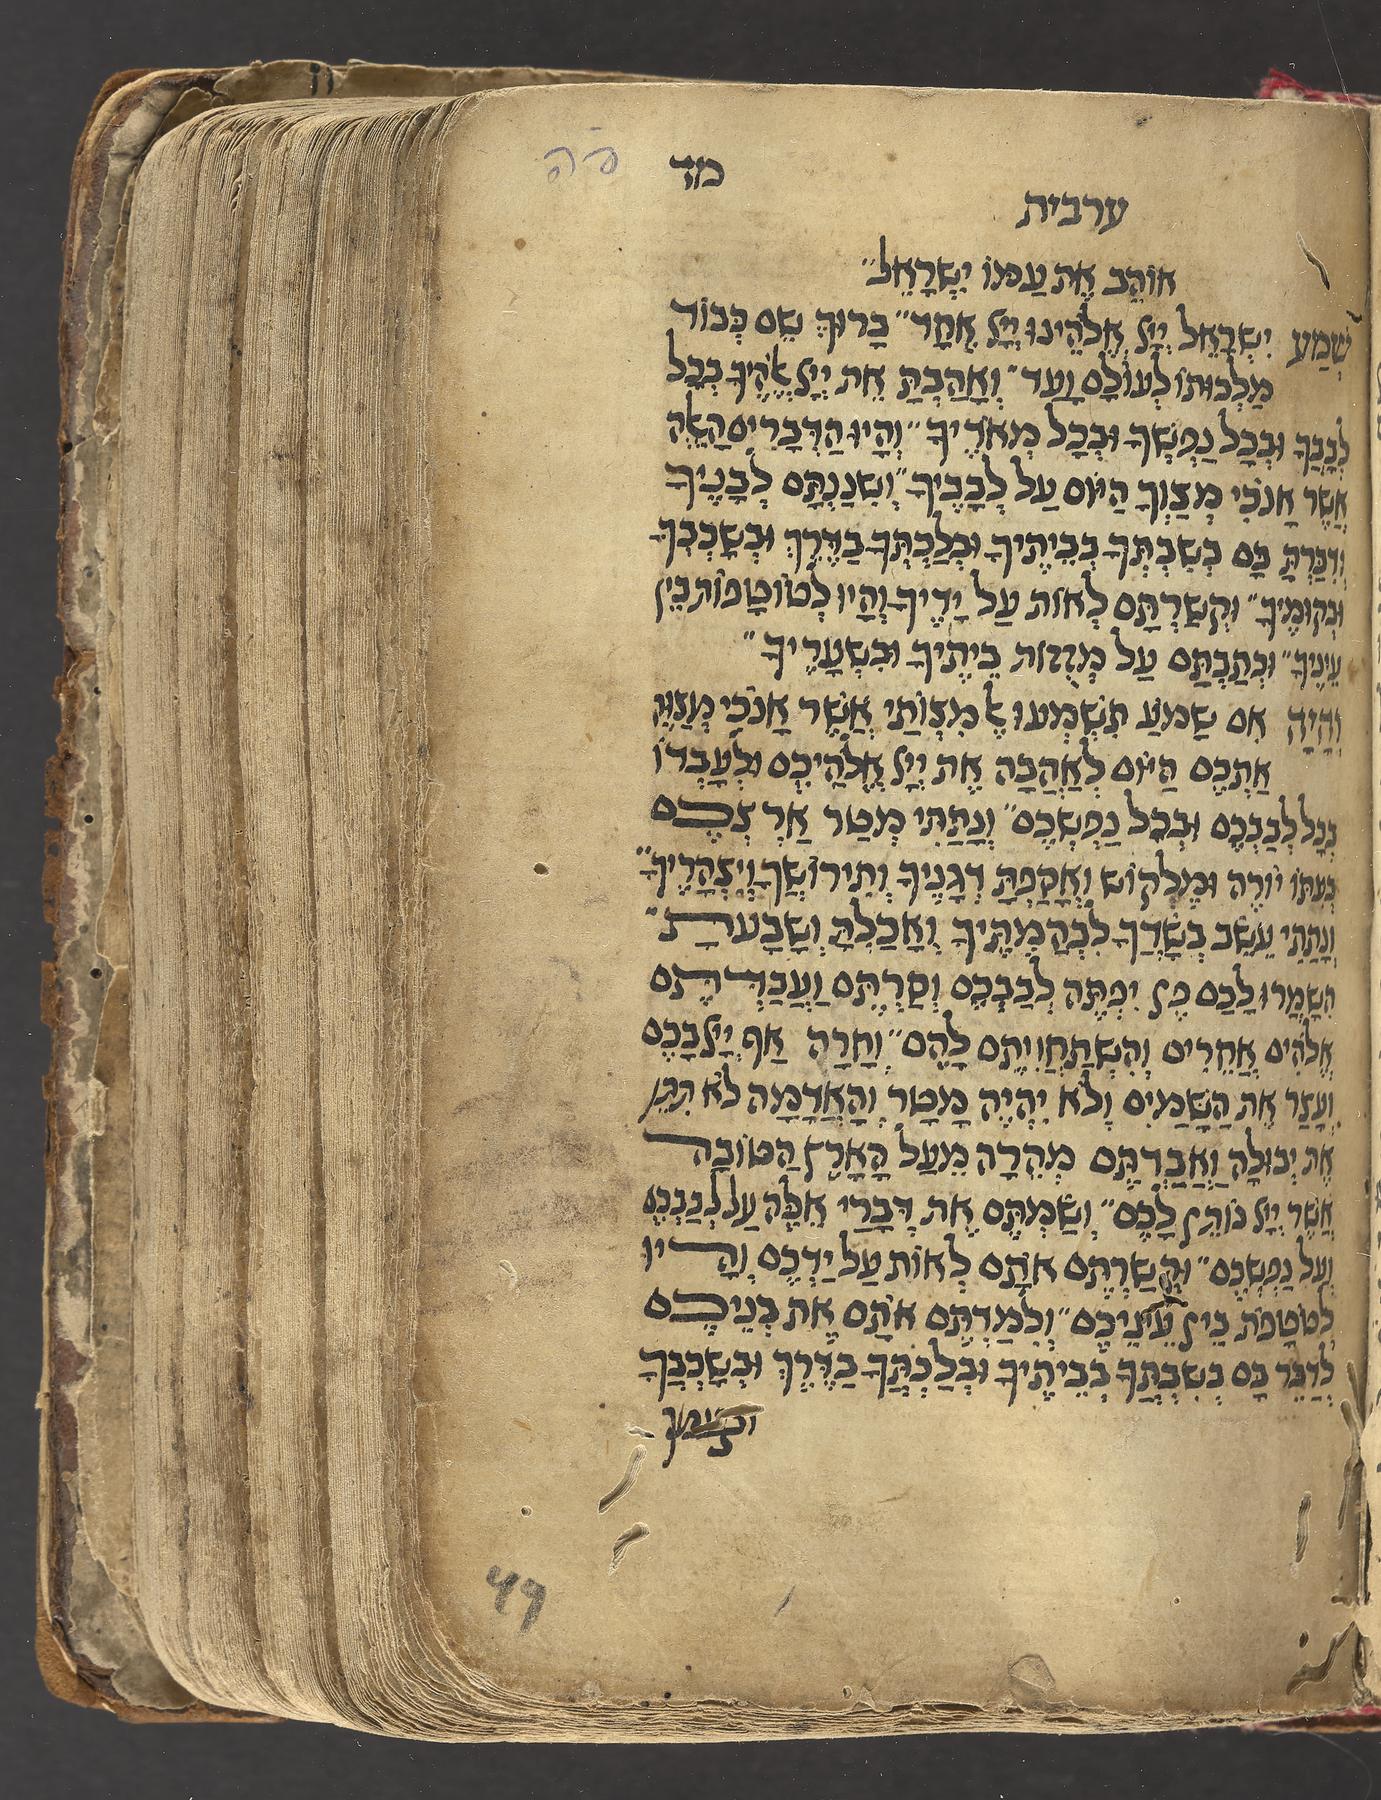 פה
מד
ערבית
אוֹהֵב אֶת עַמּוֹ יִשְׂרָאֵל״
שְׁמַע יִשְׂרָאֵל יְיָ אֱלֹהֵינוּ יְיָ אֶחָד״ בָּרוּךְ שֵׁם כְּבוֹד
מַלְכוּתוֹ לְעוֹלָם וָעֵד״ וְאָהַבְתָּ אֵת יְיָ אֱלֹהֶיךָ בְּכָל
לְבָבְךָ וּבְכָל נַפְשְׁךָ וּבְכָל מְאֹדֶיךָ״ וְהָיוּ הַדְּבָרִים הָאֵלֶּה
אֲשֶׁר אָנֹכִי מְצַוְּךָ הַיּוֹם עַל לְבָבֶיךָ״ וְשִׁנַּנְתָּם לְבָנֶיךָ
וְדִבַּרְתָּ בָּם בְּשִׁבְתְּךָ בְּבֵיתֶיךָ וּבְלַכְתְּךָ בַדֶּרֶךְ וּבְשָׁכְבְּךָ
וּבְקוּמֶיךָ״ וּקְשַׁרְתָּם לְאוֹת עַל יָדֶיךָ וְהָיוּ לְטוֹטָפוֹת בֵּין
עֵינֶיךָ״ וּכְתַבְתָּם עַל מְזֻזוֹת בֵּיתֶיךָ וּבִשְׁעָרֶיךָ״
וְהָיָה אִם שָׁמֹעַ תִּשְׁמְעוּ אֶל מִצְוֹתַי אֲשֶׁר אָנֹכִי מְצַוֶּה
אֶתְכֶם הַיּוֹם לְאַהֲבָה אֶת יְיָ אֱלֹהֵיכֶם וּלְעָבְדוֹ
בְּכָל לְבַבְכֶם וּבְכָל נַפְשְׁכֶם״ וְנָתַתִּי מְטַר אַרְצְכֶם
בְּעִתּוֹ יוֹרֶה וּמַלְקוֹשׁ וְאָסַפְתָּ דְגָנֶיךָ וְתִירוֹשְׁךָ וְיִצְהָרֶיךָ״
וְנָתַתִּי עֵשֶׂב בְּשָׂדְךָ לִבְהֶמְתֶּיךָ וְאָכַלְתָּ וְשָׂבָעתָּ״
הִשָּׁמְרוּ לָכֶם פֶּן יִפְתֶּה לְבַבְכֶם וְסַרְתֶּם וַעֲבַדְתֶּם
אֱלֹהִים אֲחֵרִים וְהִשְׁתַּחֲוִיתֶם לָהֶם״ וְחָרָה אַף יְיָ בָּכֶם
וְעָצַר אֶת הַשָּׁמַיִם וְלֹא יִהְיֶה מָטָר וְהָאֲדָמָה לֹא תִתֵּן
אֶת יְבוּלָהּ וַאֲבַדְתֶּם מְהֵרָה מֵעַל הָאָרֶץ הַטּוֹבָה
אֲשֶׁר יְיָ נוֹתֵן לָכֶם״ וְשַׂמְתֶּם אֶת דְּבָרַי אֵלֶּה עַל לְבַבְכֶם
וְעַל נַפְשְׁכֶם״ וּקְשַׁרְתֶּם אֹתָם לְאוֹת עַל יֶדְכֶם וְהָיוּ
לְטֹטָפֹת בֵּין עֵינֵיכֶם״ וְלִמַּדְתֶּם אֹתָם אֶת בְּנֵיכֶם
לְדַבֵּר בָּם בְּשִׁבְתְּךָ בְּבֵיתֶיךָ וּבְלַכְתְּךָ בַדֶּרֶךְ וּבְשָׁכְבְּךָ
49